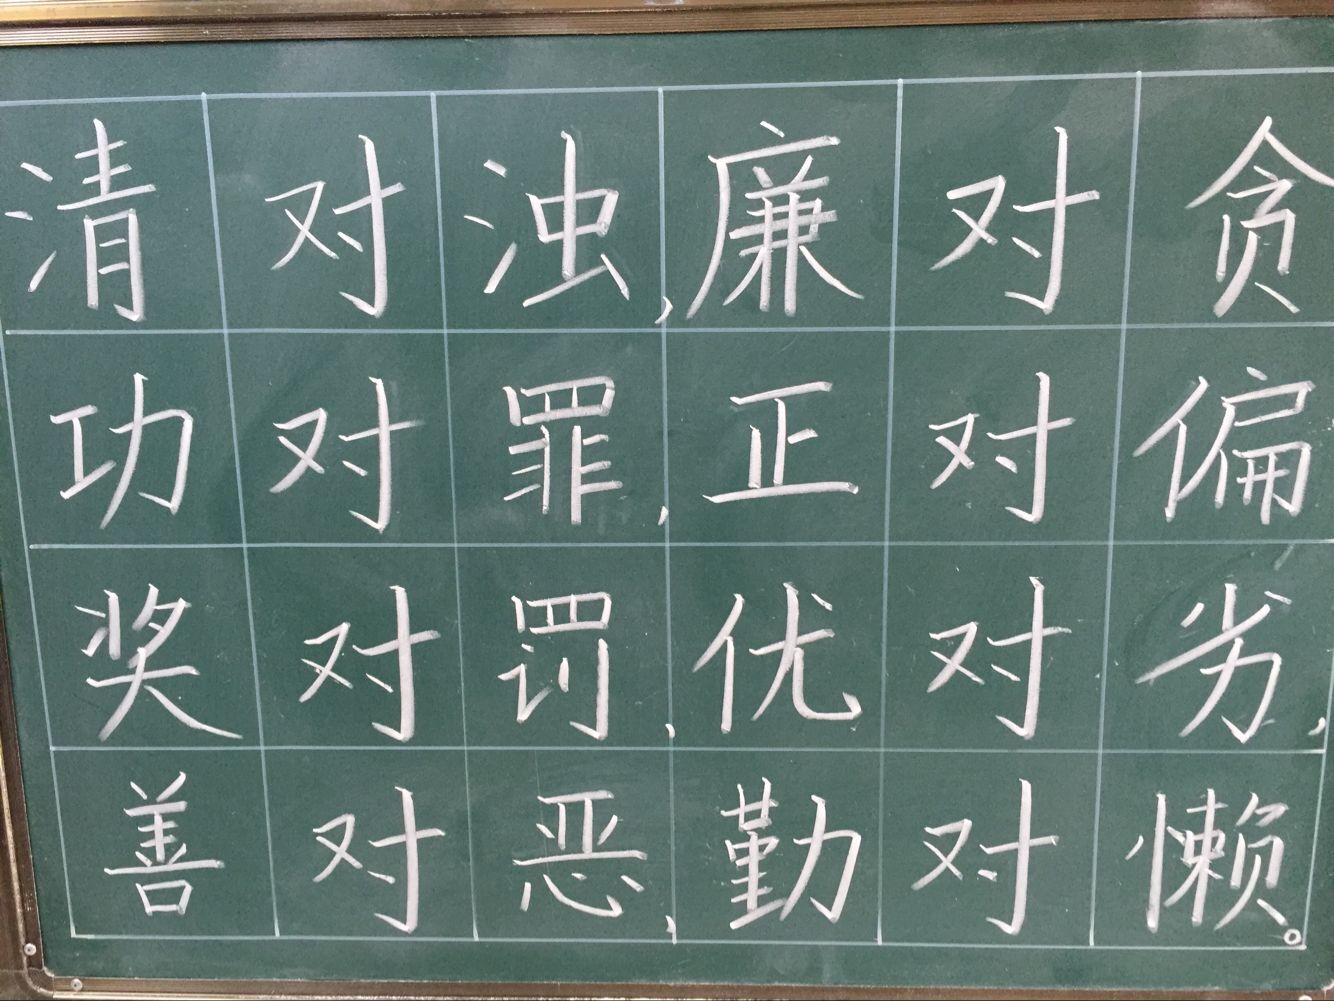 清对浊,廉对贪
功对罪,正对偏
奖对罚,优对劣,
善对恶,勤对懒。